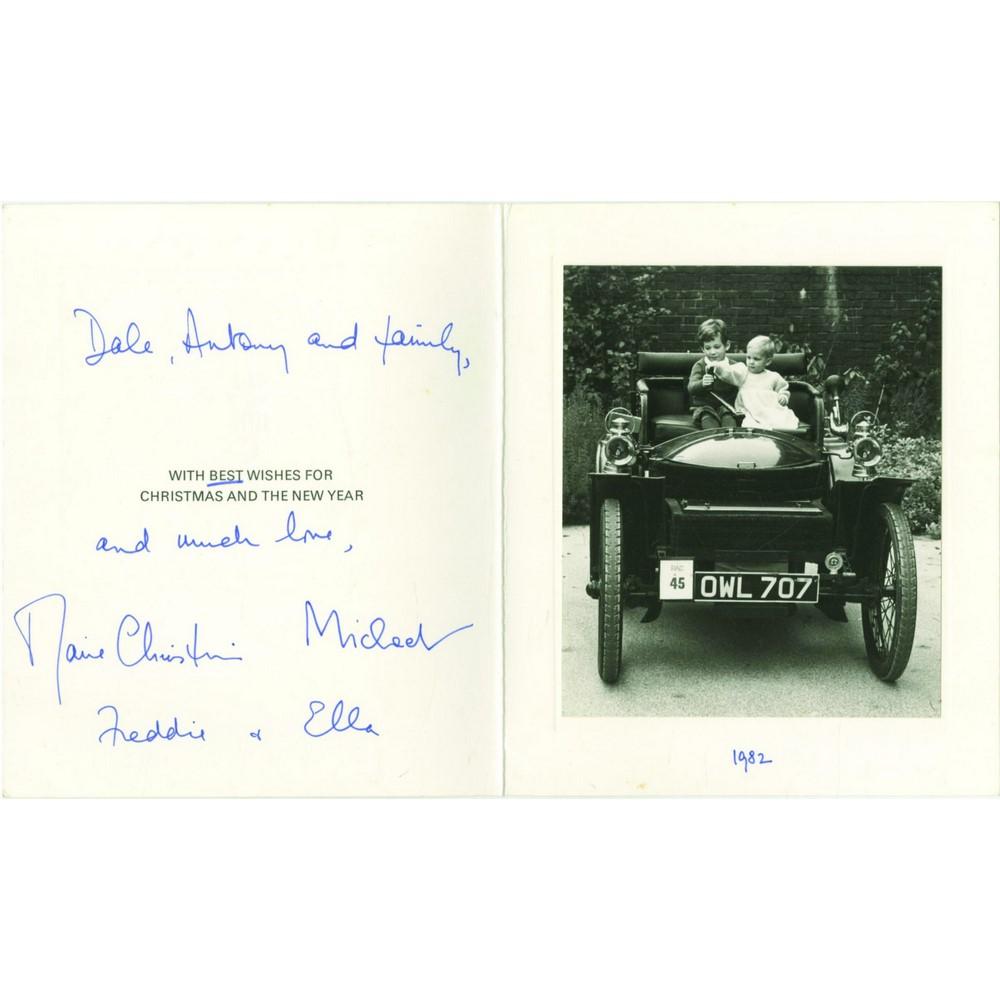 Dale, Antony and family,
WITH BEST WISHES FOR
CHRISTMAS AND THE NEW YEAR
and much love,
Marie Christine Michael
Freddie & Ella
RAC
45
OWL 707
1982